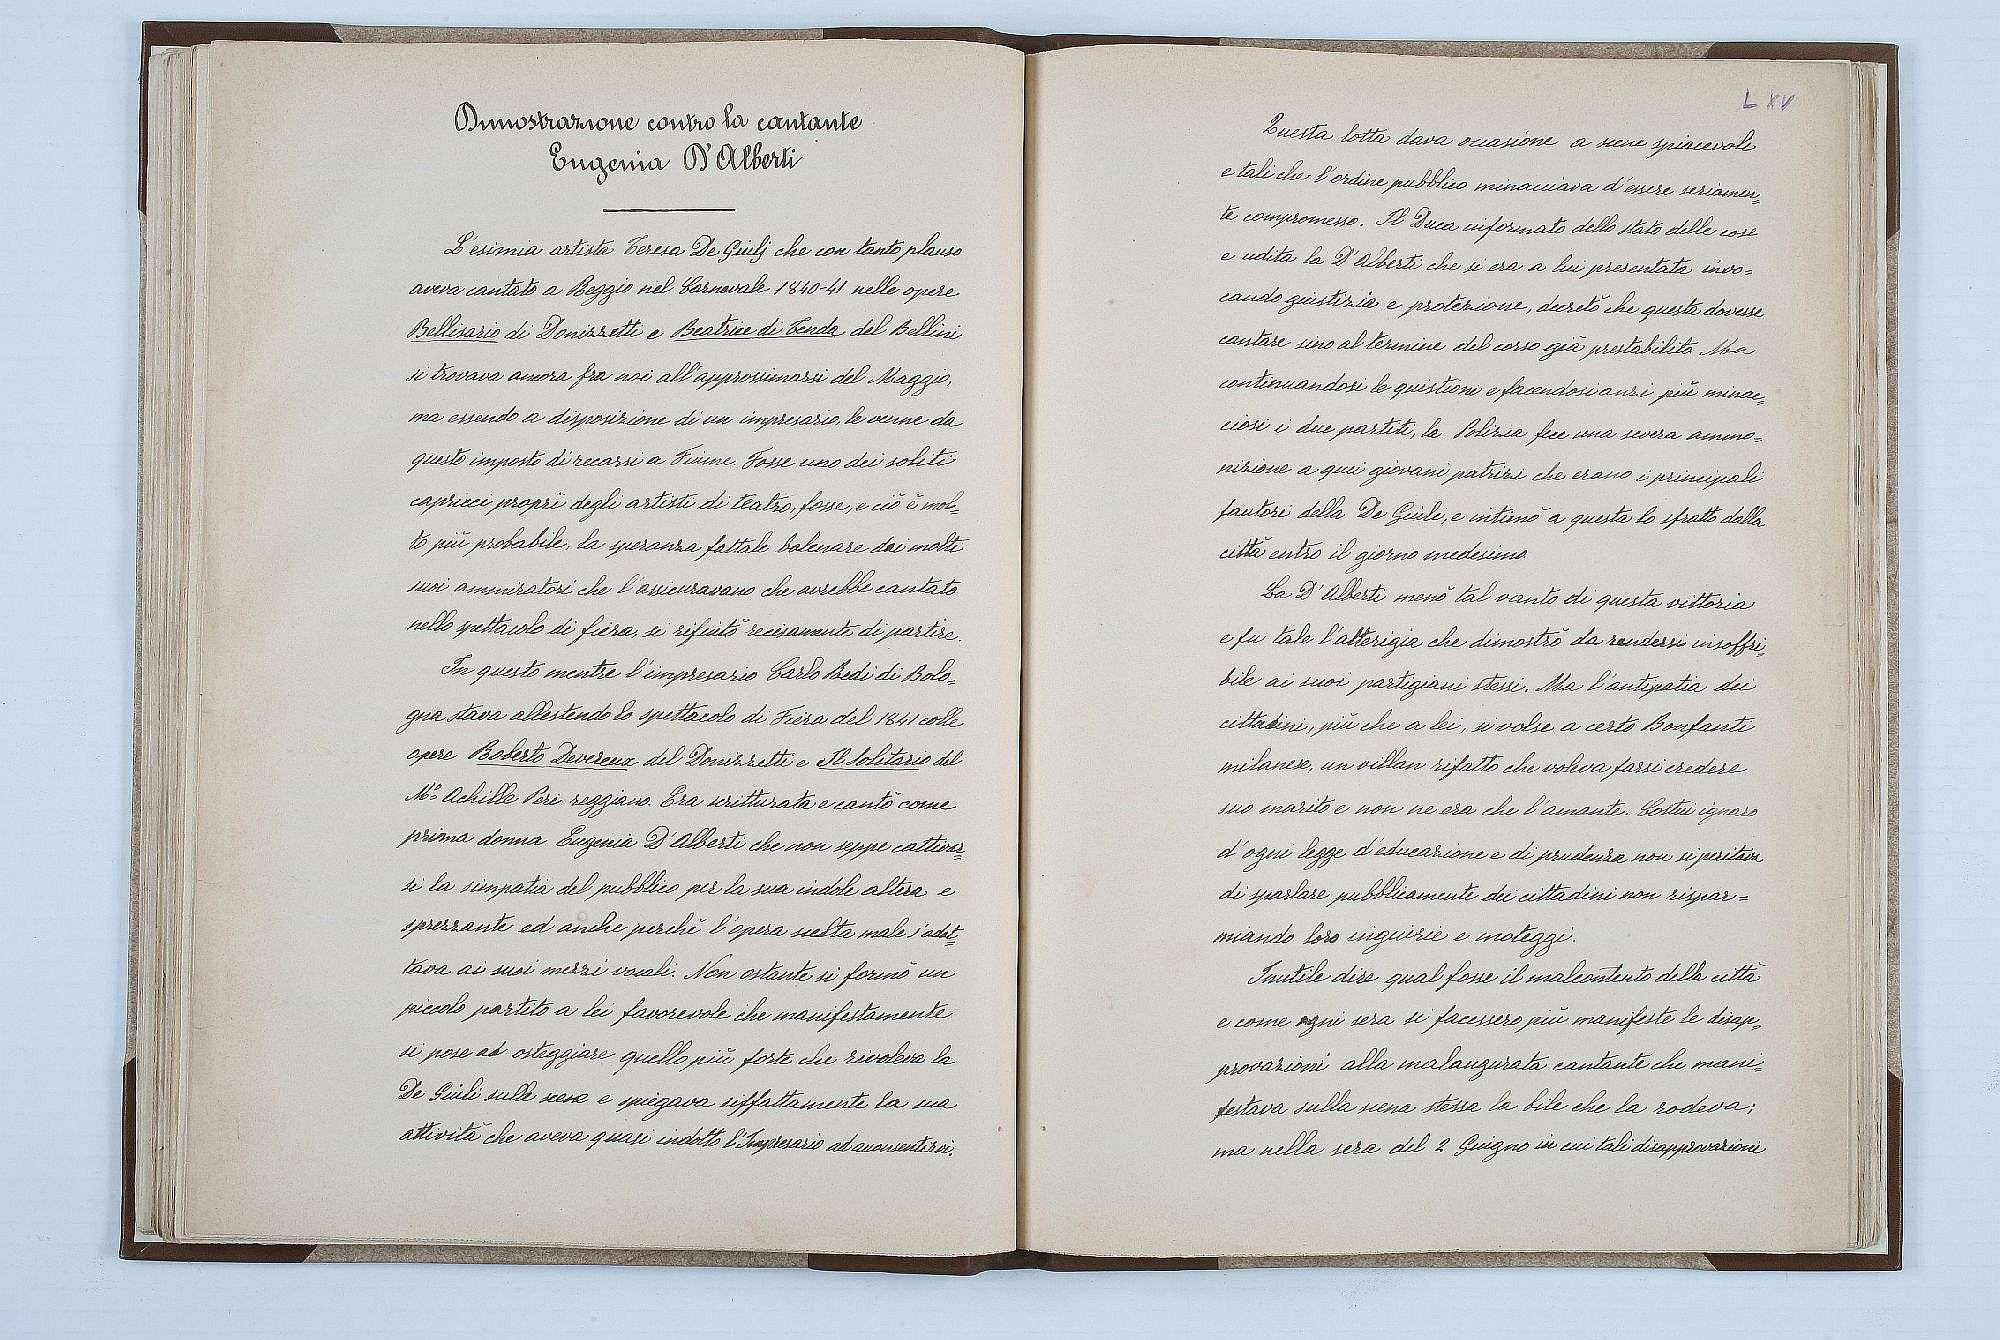 Dimostrazione contro la cantante
Eugenia D'Alberti
L'esimia artista Teresa De Giulj che con tanto plauso
aveva cantato a Reggio nel Carnevale 1840-41 nelle opere
Bellisario di Donizzetti e Beatrice di Tenda del Bellini
si trovava ancora fra noi all'approssimarsi del Maggio,
ma essendo a disposizione di un impresario, le venne da
questo imposto di recarsi a Fiume. Fosse uno dei soliti
capricci proprî degli artisti di teatro, fosse, e ciò è mol=
to più probabile, la speranza fattale balenare dai molti
suoi ammiratori che l'assicuravano che avrebbe cantato
nello spettacolo di fiera, si rifiutò recisamente di partire.
In questo mentre l'impresario Carlo Redi di Bolo=
gna stava allestendo lo spettacolo di Fiera del 1841 colle
opere Roberto Devereux del Donizzetti e Il Solitario del
Mo Achille Peri reggiano. Era scritturata e cantò come
prima donna Eugenia D'Alberti che non seppe cattivar=
si la simpatia del pubblico per la sua indole altera e
sprezzante ed anche perchè l'opera scelta male s'adat=
tava ai suoi mezzi vocali. Non ostante si formò un
piccolo partito a lei favorevole che manifestamente
si pose ad osteggiare quello più forte che rivoleva la
De Giuli sulle scene e spiegava siffattamente la sua
attività che aveva quasi indotto l'Impresario ad acconsentirvi.
LXV
Questa lotta dava occasione a scene spiacevoli
e tali che l'ordine pubblico minacciava d'essere seriamen=
te compromesso. Il Duca informato dello stato delle cose
e udita la D'Alberti che si era a lui presentata invo=
cando giustizia e protezione, decretò che questa dovesse
cantare sino al termine del corso già prestabilito. Ma
continuandosi le questioni e facendosi anzi più minac=
ciosi i due partiti, la Polizia fece una severa ammo=
nizione a quei giovani patrizi che erano i principali
fautori della De Giuli, e intimò a questa lo sfratto dalla
città entro il giorno medesimo
La D'Alberti menò tal vanto di questa vittoria
e fu tale l'alterigia che dimostrò da rendersi insoffri=
bile ai suoi partigiani stessi. Ma l'antipatia dei
cittadini, più che a lei, si volse a certo Bonfanti
milanese, un villan rifatto che voleva farsi credere
suo marito e non ne era che l'amante. Costui ignaro
d'ogni legge d'educazione e di prudenza non si peritava
di sparlare pubblicamente dei cittadini non rispar=
miando loro ingiurie e moteggi.
Inutile dire qual fosse il malcontento della città
e come ogni sera si facessero più manifeste le disap=
provazioni alla malaugurata cantante che mani=
festava sulla scena stessa la bile che la rodeva;
ma nella sera del 2 Giugno in cui tali disapprovazioni